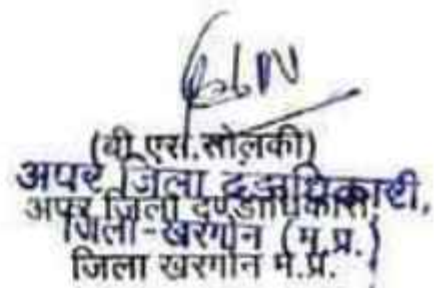 (बी.एस.सोलंकी)
अपर जिला दण्डाधिकारी,
अपर जिला दण्डाधिकारी,
जिला-खरगोन (म.प्र.)
जिला खरगोन म.प्र.